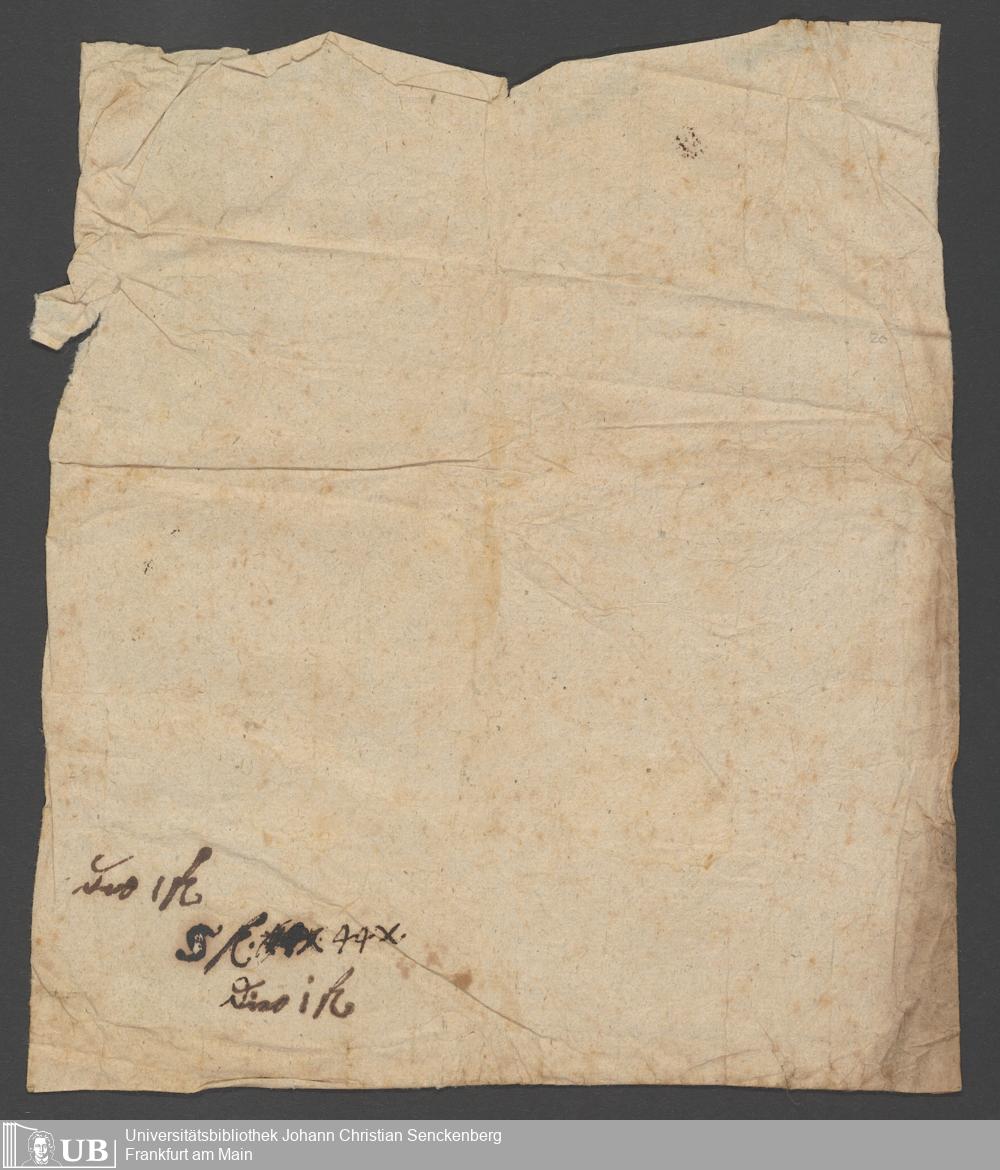 20
1 fl
5 fl. 44 x.
1 fl
UB
Universitätsbibliothek Johann Christian Senckenberg
Frankfurt am Main